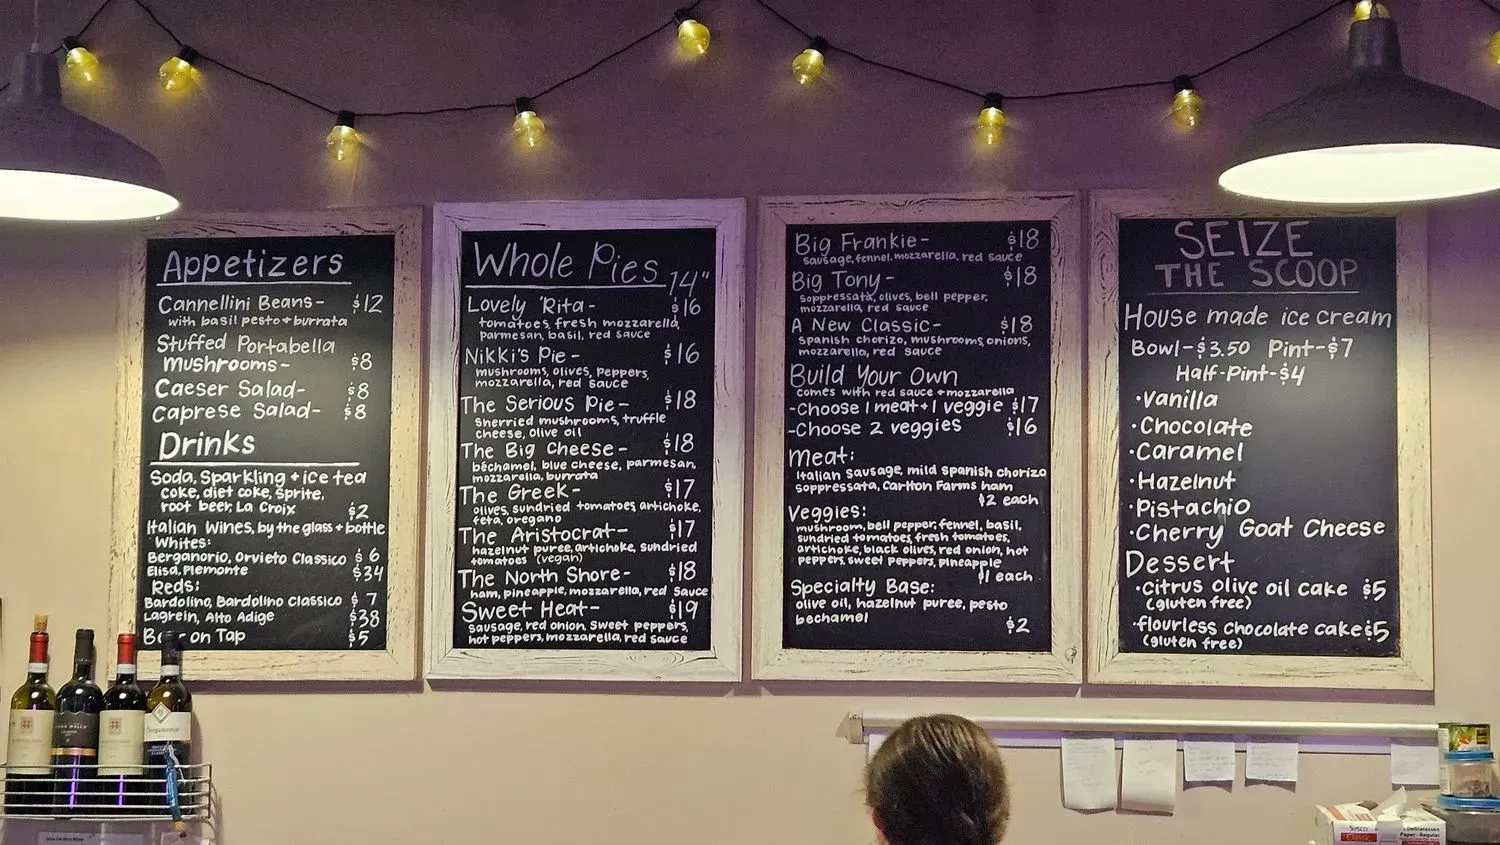 Appetizers
Cannellini Beans- $12
with basil pesto + burrata
Stuffed Portabella
Mushrooms- $8
Caeser Salad- $8
Caprese Salad- $8
Drinks
Soda, Sparkling + ice tea
coke, diet coke, sprite,
root beer, La Croix $2
Italian Wines, by the glass + bottle
Whites:
Berganorio, Orvieto Classico $6
Elisa, Piemonte $34
Reds:
Bardolino, Bardolino Classico $7
Lagrein, Alto Adige $38
Beer on Tap $5
Whole Pies 14"
Lovely 'Rita- $16
tomatoes, fresh mozzarella,
parmesan, basil, red sauce
Nikki's Pie- $16
mushrooms, olives, peppers,
mozzarella, red sauce
The Serious Pie- $18
Sherried mushrooms, truffle
cheese, olive oil
The Big Cheese- $18
béchamel, blue cheese, parmesan,
mozzarella, burrata
The Greek- $17
olives, sundried tomatoes, artichoke,
feta, oregano
The Aristocrat- $17
hazelnut puree, artichoke, sundried
tomatoes (vegan)
The North Shore- $18
ham, pineapple, mozzarella, red sauce
Sweet Heat- $19
Sausage, red onion, Sweet peppers,
hot peppers, mozzarella, red sauce
Big Frankie- $18
sausage, fennel, mozzarella, red sauce
Big Tony- $18
soppressata, olives, bell pepper,
mozzarella, red sauce
A New Classic- $18
spanish chorizo, mushrooms, onions,
mozzarella, red sauce
Build Your Own
comes with red sauce + mozzarella
-Choose 1 meat + 1 veggie $17
-Choose 2 veggies $16
Meat:
Italian Sausage, mild Spanish chorizo
soppressata, Carlton Farms ham
$2 each
Veggies:
mushroom, bell pepper, fennel, basil,
sundried tomatoes, fresh tomatoes,
artichoke, black olives, red onion, hot
peppers, sweet peppers, pineapple
$1 each
Specialty Base:
olive oil, hazelnut puree, pesto
bechamel $2
SEIZE
THE SCOOP
House made ice cream
Bowl-$3.50 Pint-$7
Half-Pint-$4
·Vanilla
·Chocolate
·Caramel
·Hazelnut
·Pistachio
·Cherry Goat Cheese
Dessert
·citrus olive oil cake $5
(gluten free)
·flourless chocolate cake $5
(gluten free)
Sysco
Classic
Delicatessen
Paper - Regular